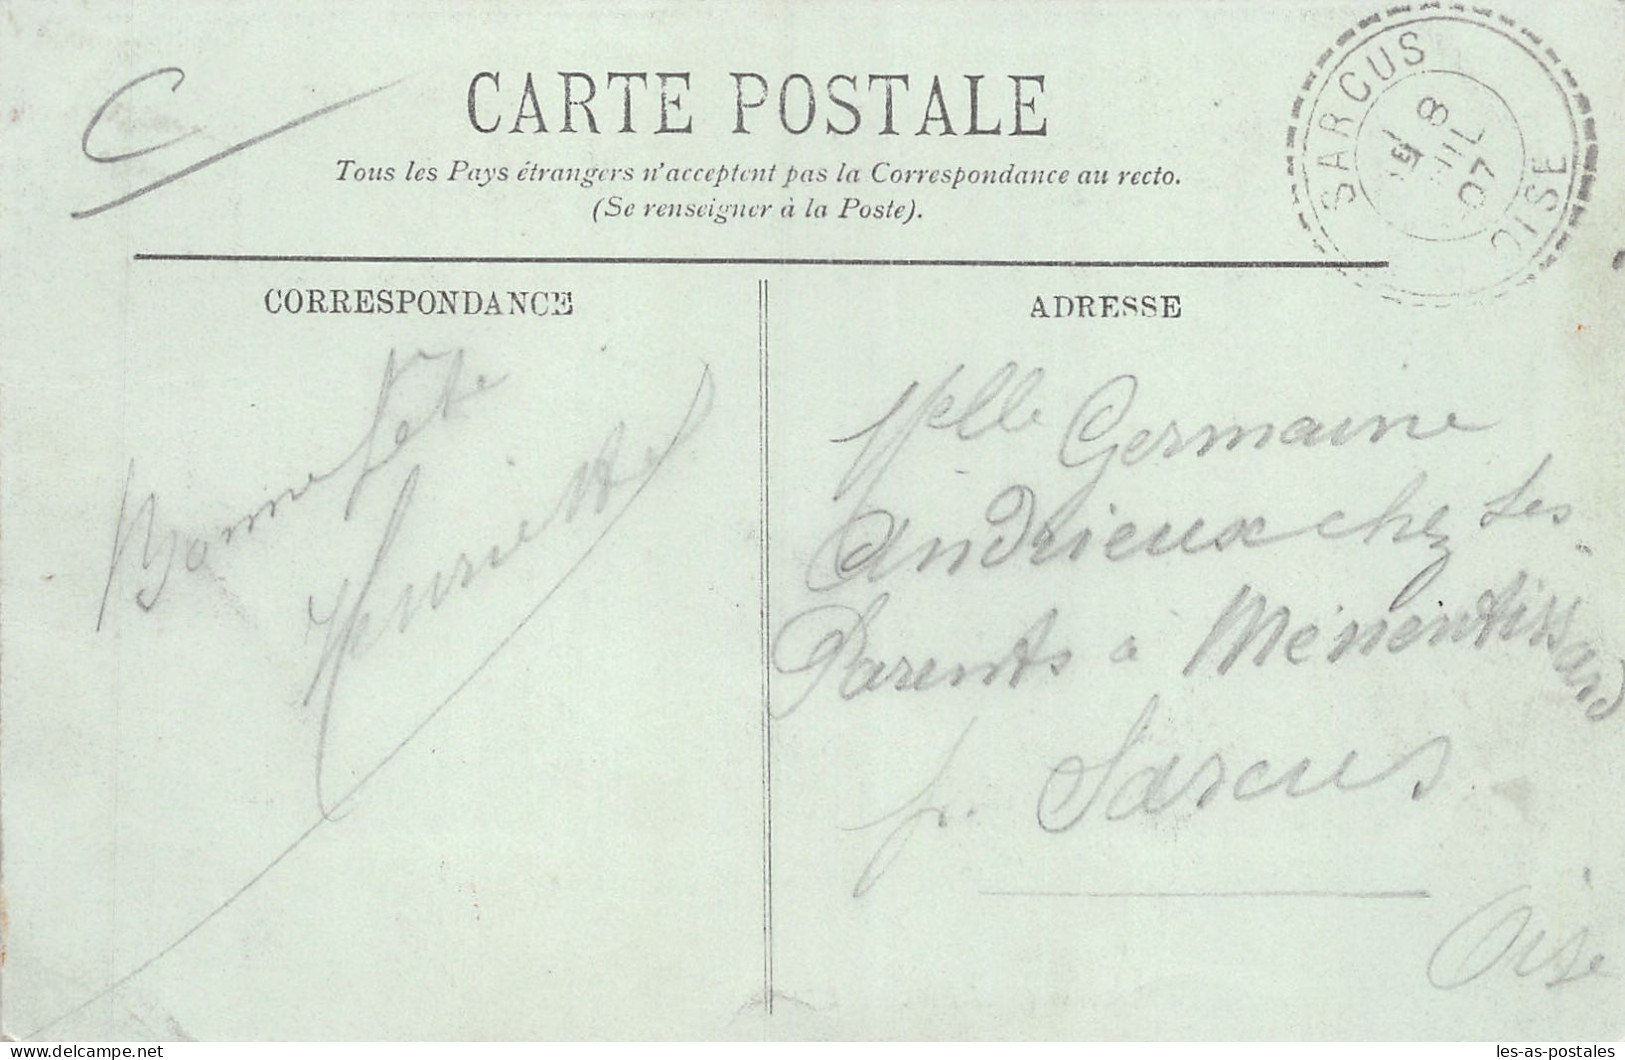 C
CARTE POSTALE
Tous les Pays étrangers n'acceptent pas la Correspondance au recto.
(Se renseigner à la Poste).
SARCUS
8
JUIL
07
OISE
CORRESPONDANCE
Bonne fête
Henriette
ADRESSE
Melle Germaine
Andrieux chez Ses
Parents à Ménentissard
p. Sarcus
Oise
delcampe.net
les-as-postales